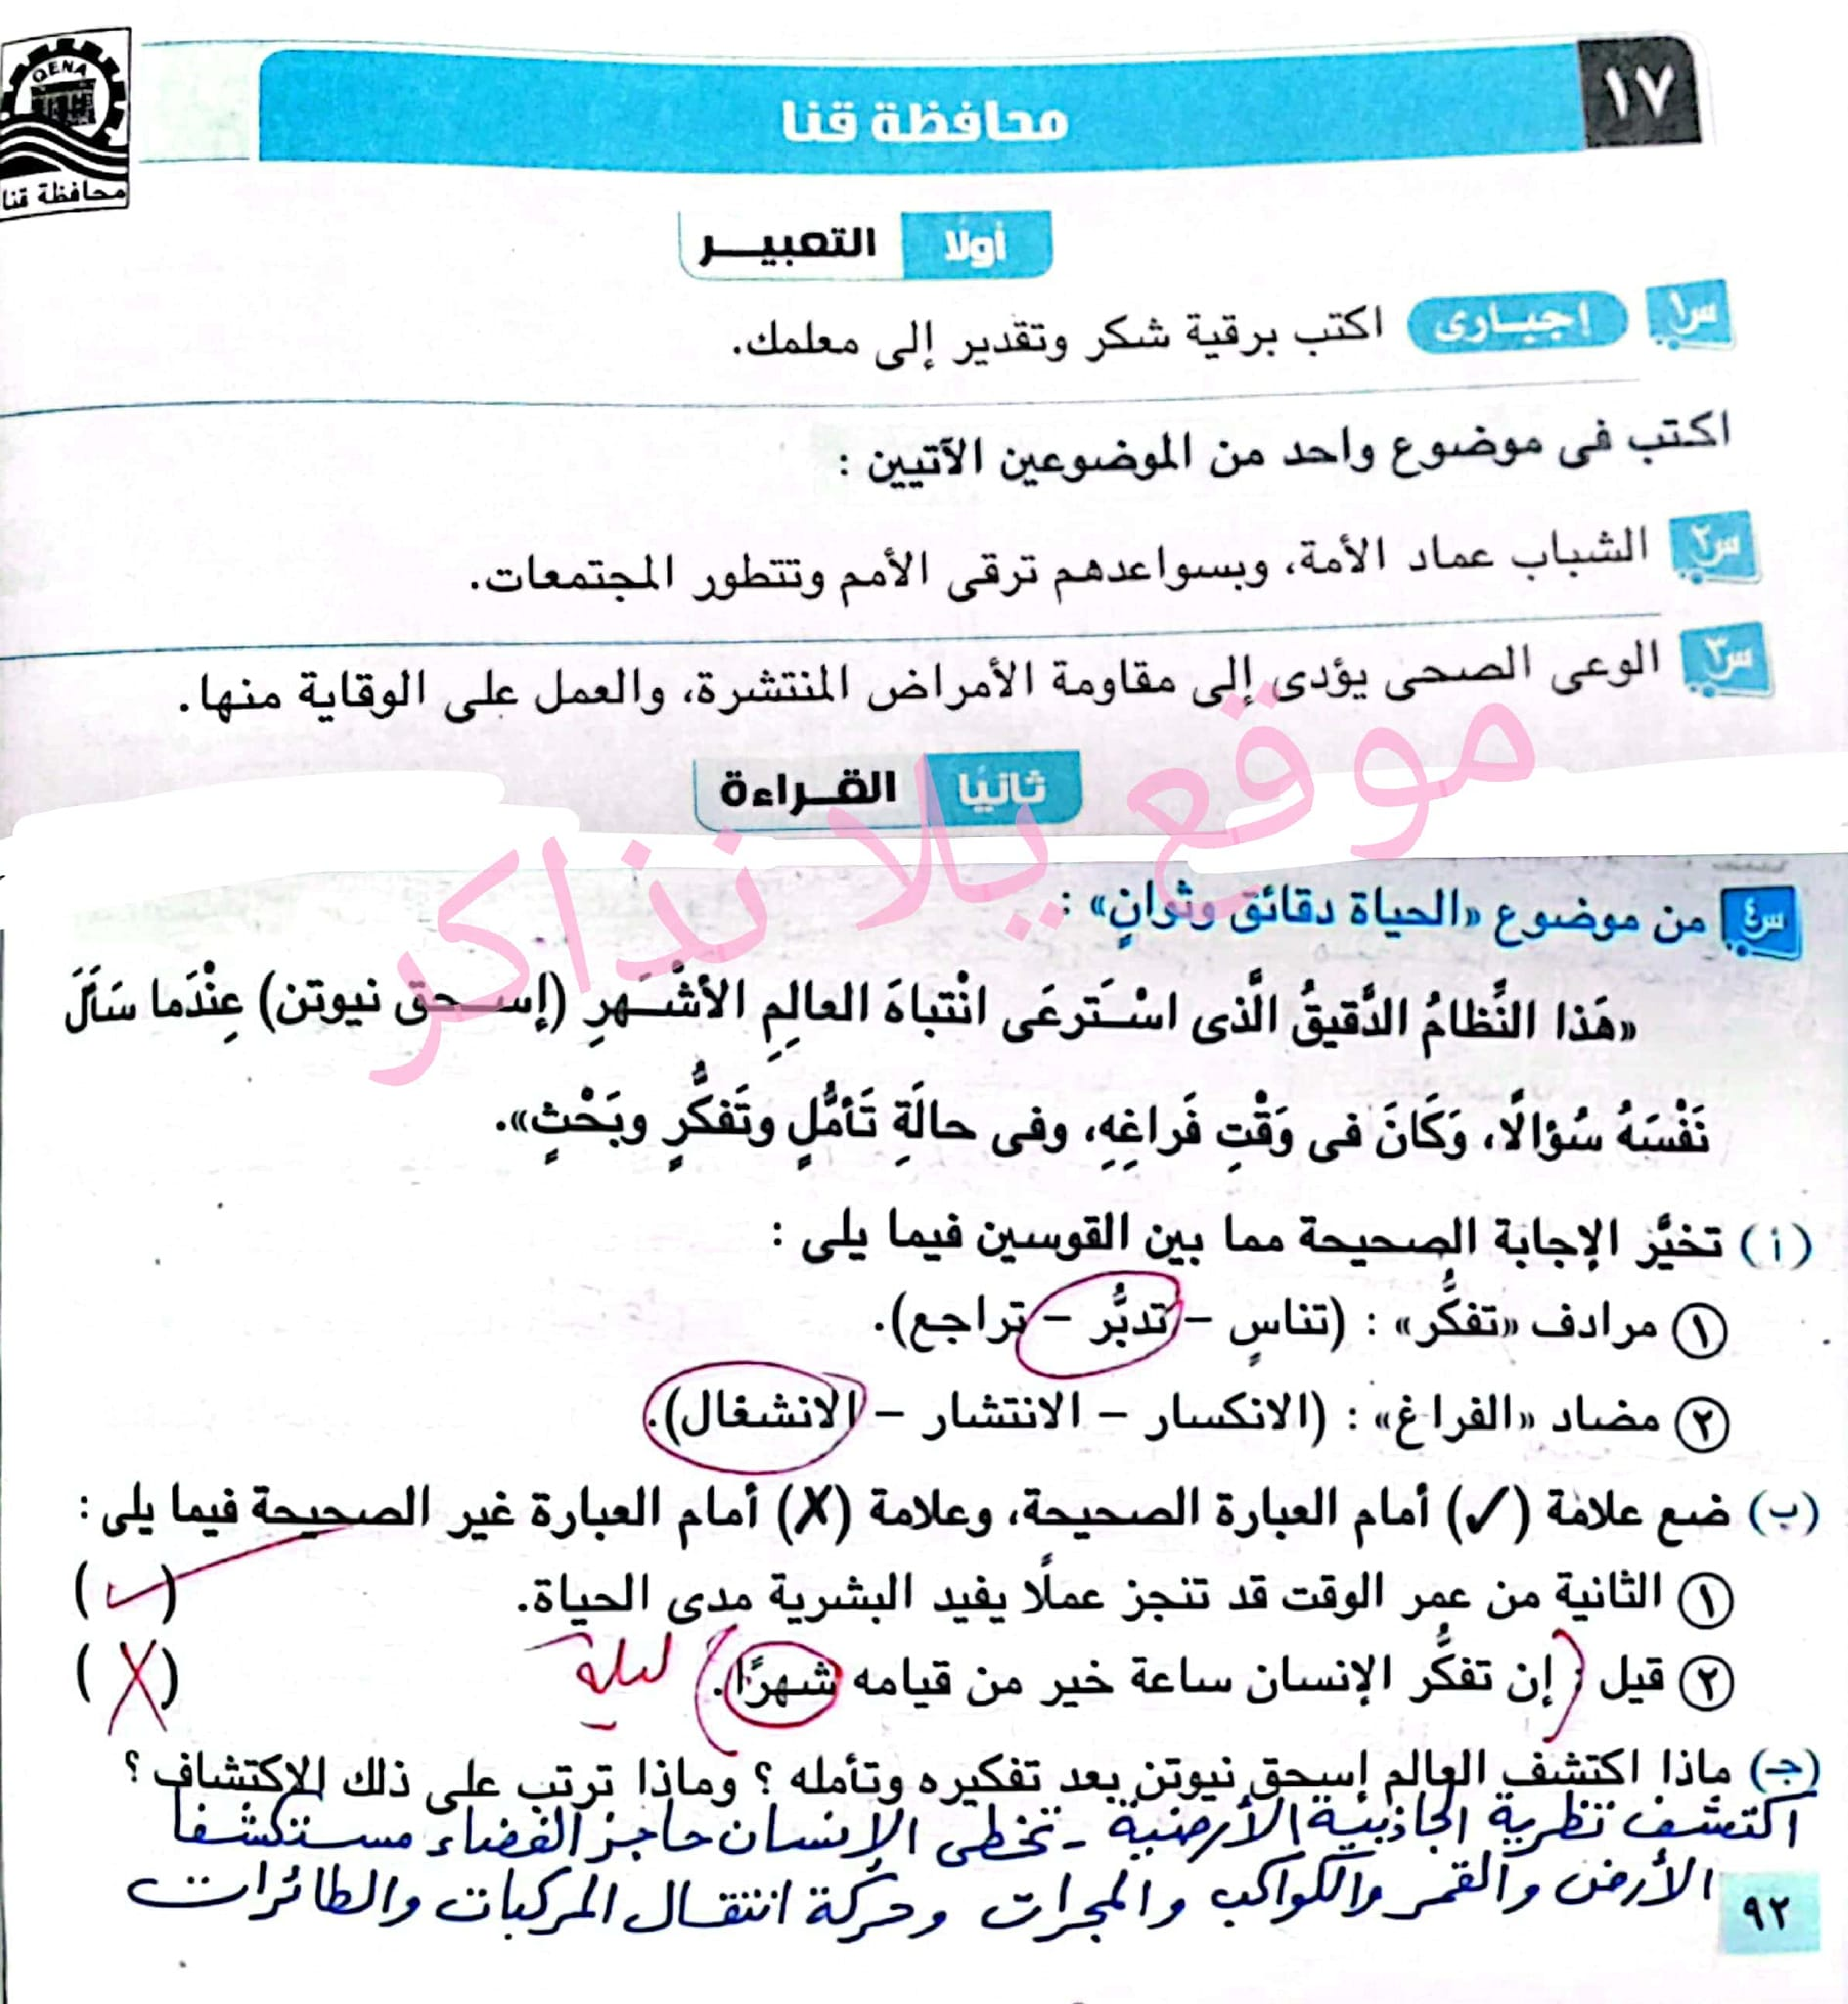 QENA
محافظة قنا
١٧
محافظة قنا
أولًا التعبيـــر
س١ إجبـارى اكتب برقية شكر وتقدير إلى معلمك.
اكتب فى موضوع واحد من الموضوعين الآتيين :
س٢ الشباب عماد الأمة، وبسواعدهم ترقى الأمم وتتطور المجتمعات.
س٣ الوعى الصحى يؤدى إلى مقاومة الأمراض المنتشرة، والعمل على الوقاية منها.
ثانيًا القــراءة
موقع يلا نذاكر
س٤ من موضوع «الحياة دقائق وثوانٍ» :
«هَذا النِّظامُ الدَّقيقُ الَّذى اسْـتَرعَى انْتباهَ العالِمِ الأشْـهَرِ (إســحق نيوتن) عِنْدَما سَأَلَ
نَفْسَهُ سُؤالًا، وَكَانَ فى وَقْتِ فَراغِهِ، وفى حالَةِ تَأمُّلٍ وتَفكُّرٍ وبَحْثٍ».
(أ) تخيَّر الإجابة الصحيحة مما بين القوسين فيما يلى :
١ مرادف «تفكُّر» : (تناسٍ – تدبُّر – تراجع).
٢ مضاد «الفراغ» : (الانكسار – الانتشار – الانشغال).
(ب) ضع علامة (✓) أمام العبارة الصحيحة، وعلامة (✗) أمام العبارة غير الصحيحة فيما يلى :
١ الثانية من عمر الوقت قد تنجز عملًا يفيد البشرية مدى الحياة. (✓)
٢ قيل : إن تفكُّر الإنسان ساعة خير من قيامه شهرًا. ليلة (✗)
(جـ) ماذا اكتشف العالم إسحق نيوتن بعد تفكيره وتأمله ؟ وماذا ترتب على ذلك الاكتشاف ؟
اكتشف نظرية الجاذبية الأرضية - تخطى الإنسان حاجز الفضاء مستكشفا
الأرض والقمر والكواكب والمجرات وحركة انتقال المركبات والطائرات
٩٢